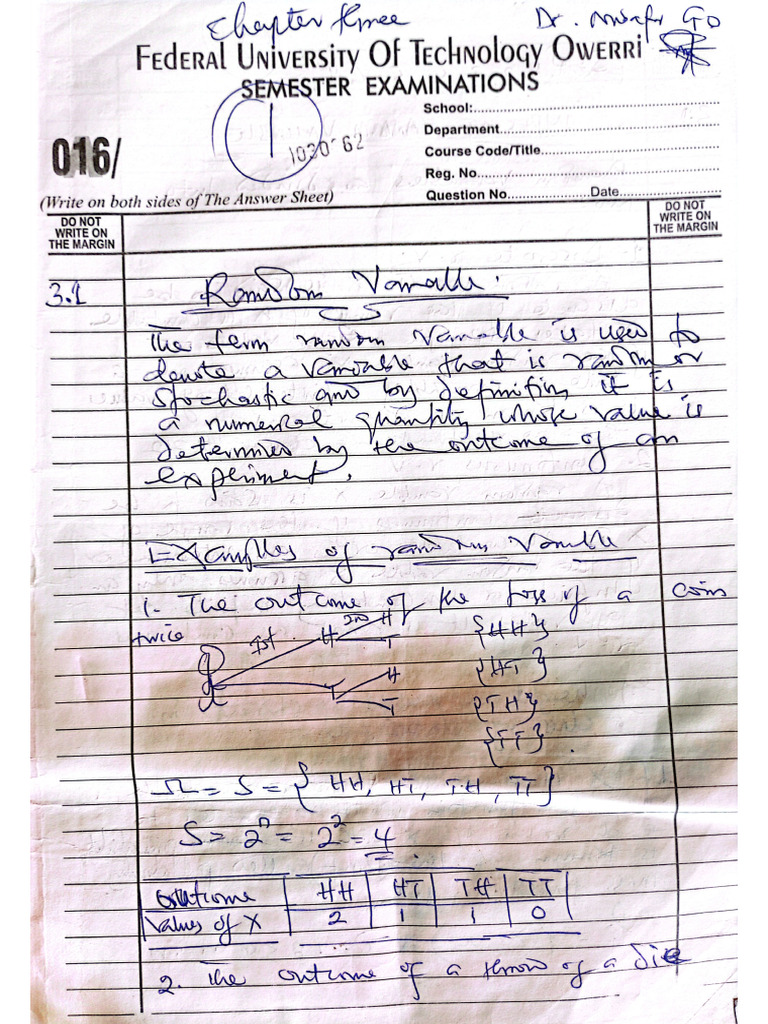 Chapter three Dr. GO
FEDERAL UNIVERSITY OF TECHNOLOGY OWERRI
SEMESTER EXAMINATIONS
1
School:
Department
1030762
Course Code/Title
016/
Reg. No
(Write on both sides of The Answer Sheet)
Question No. Date
DO NOT WRITE ON THE MARGIN
DO NOT WRITE ON THE MARGIN
3.1 Random Variable.
The term random variable is used to
denote a variable that is random or
stochastic and by definition it is
a numerical quantity whose value is
determined by the outcome of an
experiment.
Examples of random Variable
1. The outcome of the toss of a coin
twice
1st H 2nd H {HH}
T {HT}
T H {TH}
T {TT}.
Ω = S = {HH, HT, TH, TT}
S = 2ⁿ = 2² = 4
Outcome HH HT TH TT
Values of X 2 1 1 0
2. The outcome of a throw of a die